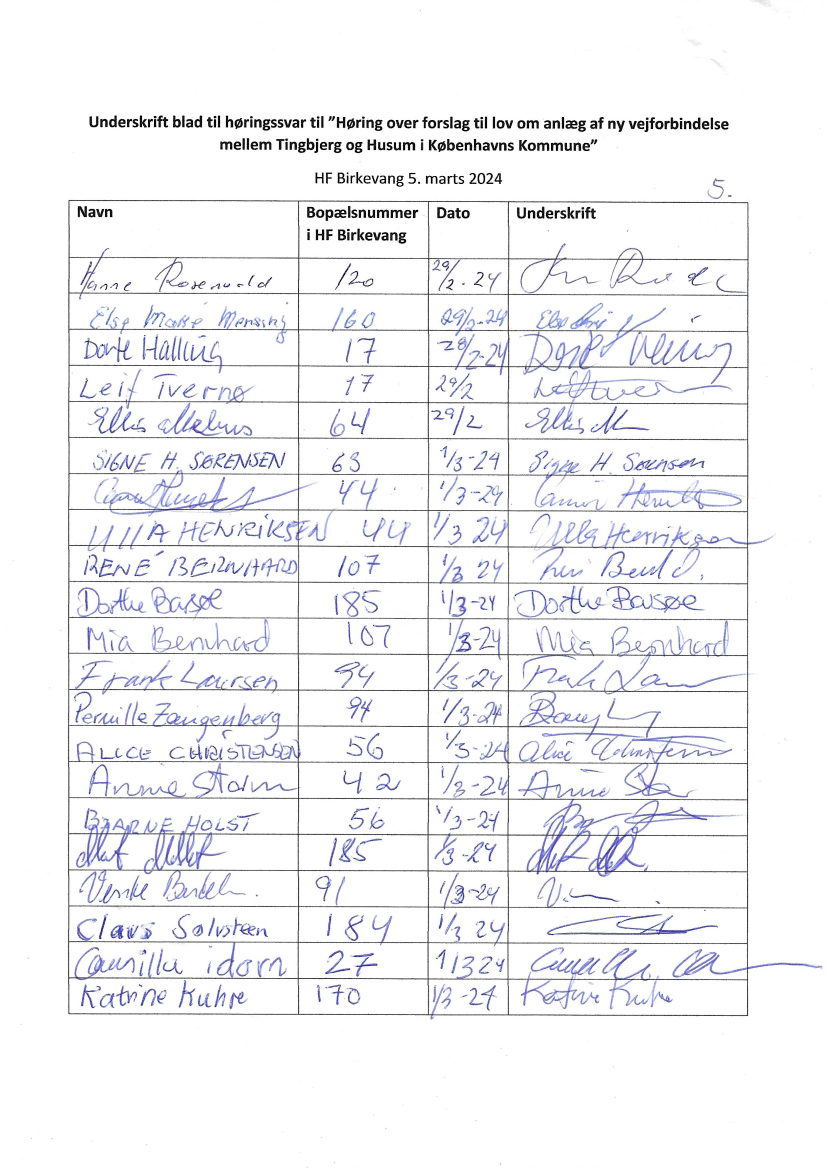 Underskrift blad til høringssvar til ”Høring over forslag til lov om anlæg af ny vejforbindelse
mellem Tingbjerg og Husum i Københavns Kommune”
HF Birkevang 5. marts 2024
5.
Navn Bopælsnummer i HF Birkevang Dato Underskrift
Hanne Rosenvold 120 29/2-24
Else Marie Mensing 160 29/2-24 Else
Dorte Halling 17 29/2-24 Dorte
Leif Tvernø 17 29/2
Ellis 64 29/2 Ellis
SIGNE H. SØRENSEN 63 1/3-24 Signe H. Sørensen
44 1/3-24
ULLA HENRIKSEN 44 1/3 24 Ulla Henriksen
RENÉ BERNHARD 107 1/3 24
Dorthe Basøe 185 1/3-24 Dorthe Basøe
Mia Bernhard 107 1/3-24 Mia Bernhard
Frank Laursen 94 1/3-24 Frank
Pernille Zangenberg 94 1/3-24
ALICE CHRISTENSEN 56 1/3-24 Alice Christensen
Annie Storm 42 1/3-24 Annie
BJARNE HOLST 56 1/3-24
185 1/3-24
91 1/3-24
Claus Sølvsteen 184 1/3 24
Camilla idorn 27 1/3 24
Katrine Kuhre 170 1/3-24 Katrine Kuhre